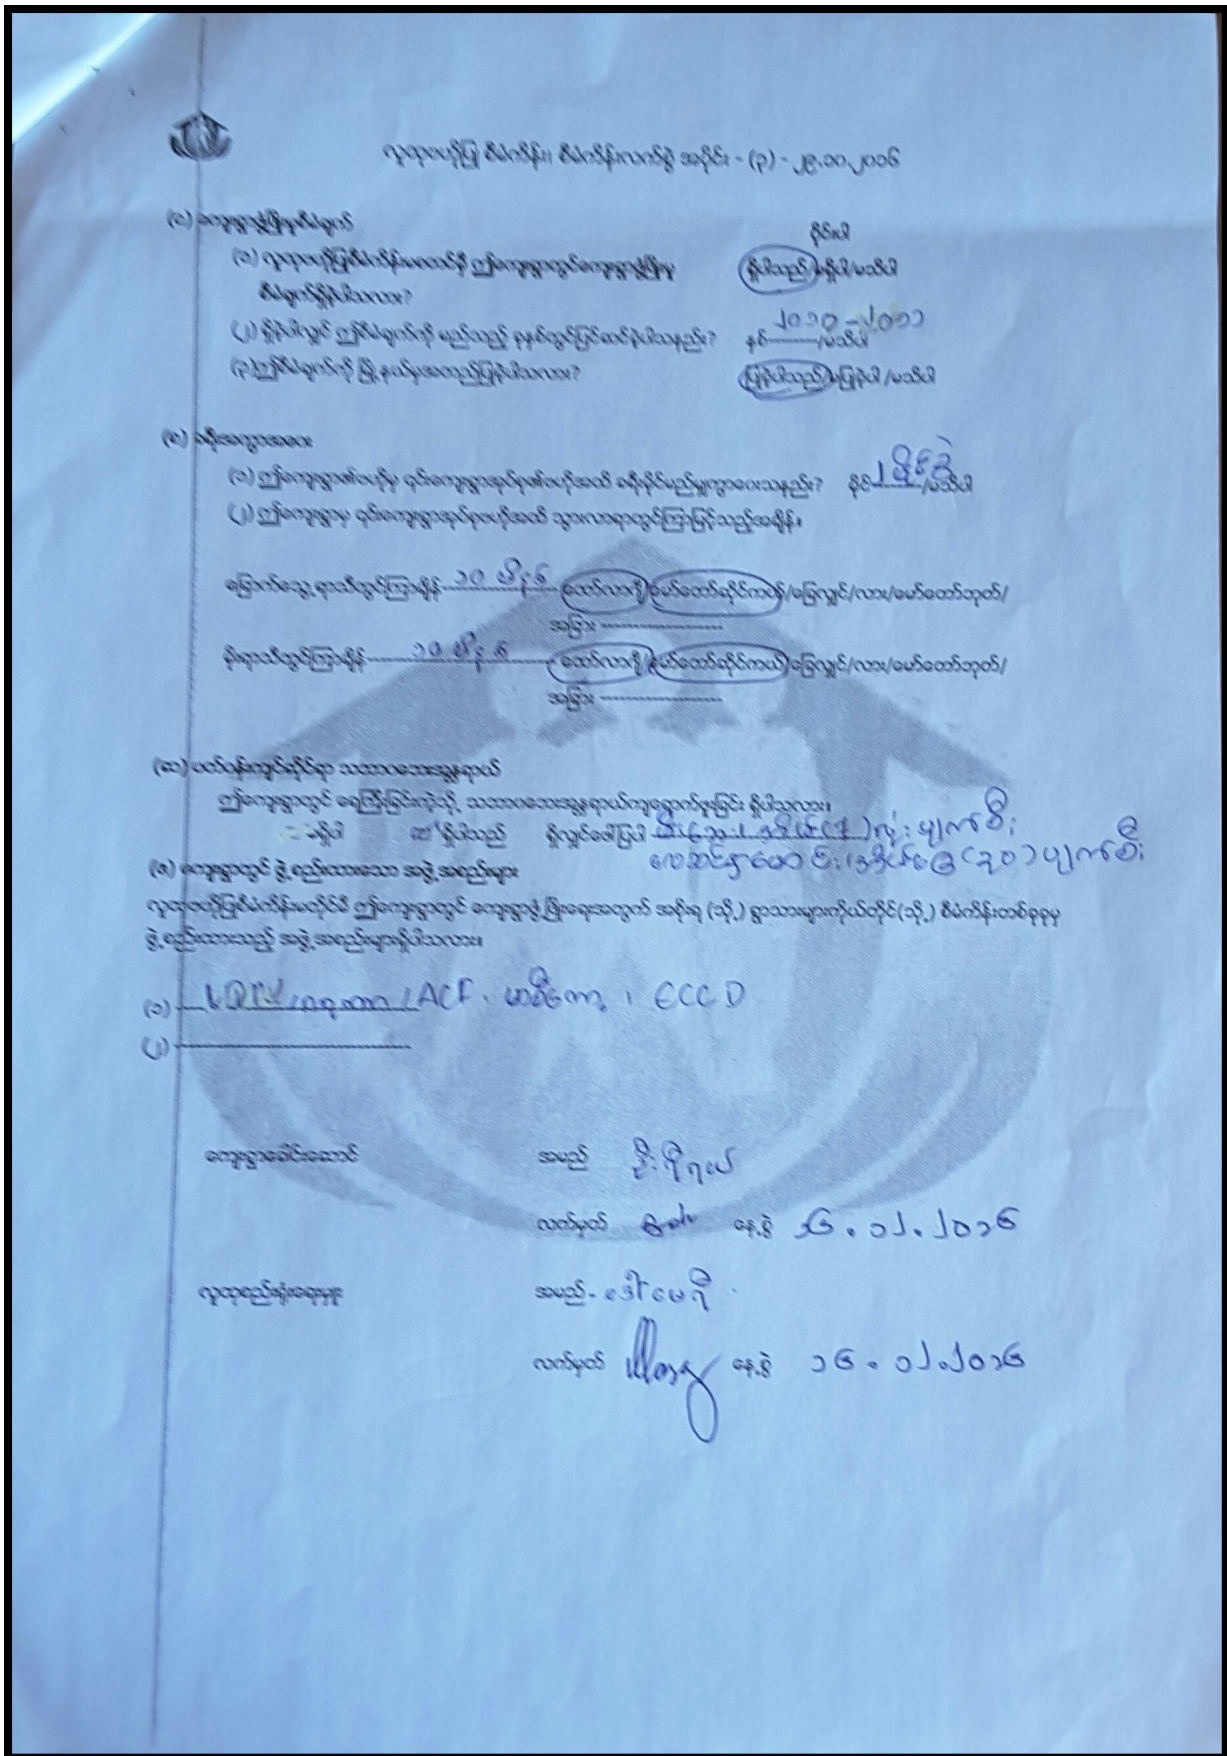 လူထုဗဟိုပြု စီမံကိန်း၊ စီမံကိန်းလက်စွဲ အပိုင်း - (၃) - ၂၉.၁၀.၂၀၁၆
(င) ကျေးရွာဖွံ့ဖြိုးမှုစီမံချက်
ဝိုင်းပါ
(၁) လူထုဗဟိုပြုစီမံကိန်းမစတင်မီ ဤကျေးရွာတွင်ကျေးရွာဖွံ့ဖြိုးမှု ရှိပါသည်/မရှိပါ/မသိပါ
စီမံချက်ရှိခဲ့ပါသလား?
(၂) ရှိခဲ့ပါလျှင် ဤစီမံချက်ကို မည်သည့် ခုနှစ်တွင်ပြင်ဆင်ခဲ့ပါသနည်း? နှစ် ၂၀၁၀-၂၀၁၁ /မသိပါ
(၃)ဤစီမံချက်ကို မြို့နယ်မှအတည်ပြုခဲ့ပါသလား? ပြုခဲ့ပါသည်/မပြုခဲ့ပါ /မသိပါ
(စ) ခရီးအကွာအဝေး
(၁) ဤကျေးရွာ၏ဗဟိုမှ ၎င်းကျေးရွာအုပ်စု၏ဗဟိုအထိ ခရီးမိုင်မည်မျှကွာဝေးသနည်း? မိုင် ၂ မိုင်ခွဲ /မသိပါ
(၂) ဤကျေးရွာမှ ၎င်းကျေးရွာအုပ်စုဗဟိုအထိ သွားလာရာတွင်ကြာမြင့်သည့်အချိန်။
ခြောက်သွေ့ရာသီတွင်ကြာချိန် ၁၀ မိနစ် ထော်လာဂျီ/မော်တော်ဆိုင်ကယ်/ခြေလျှင်/လား/မော်တော်ဘုတ်/
အခြား --------------------
မိုးရာသီတွင်ကြာချိန် ၁၀ မိနစ် ထော်လာဂျီ/မော်တော်ဆိုင်ကယ်/ခြေလျှင်/လား/မော်တော်ဘုတ်/
အခြား --------------------
(ဆ) ပတ်ဝန်းကျင်ဆိုင်ရာ သဘာဝဘေးအန္တရာယ်
ဤကျေးရွာတွင် ရေကြီးခြင်းကဲ့သို့ သဘာဝဘေးအန္တရာယ်ကျရောက်ဖူးခြင်း ရှိပါသလား။
မရှိပါ ရှိပါသည် ရှိလျှင်ဖော်ပြပါ လုံးပျက်စီး
ပျက်စီး
(ဇ) ကျေးရွာတွင် ဖွဲ့စည်းထားသော အဖွဲ့အစည်းများ
လူထုဗဟိုပြုစီမံကိန်းမတိုင်မီ ဤကျေးရွာတွင် ကျေးရွာဖွံ့ဖြိုးရေးအတွက် အစိုးရ (သို့) ရွာသားများကိုယ်တိုင်(သို့) စီမံကိန်းတစ်ခုခုမှ
ဖွဲ့စည်းထားသည့် အဖွဲ့အစည်းများရှိပါသလား။
(၁) ACF ၊ ECCD
(၂) --------------------
ကျေးရွာခေါင်းဆောင် အမည် ဦးရီရယ်
လက်မှတ် နေ့စွဲ ၁၆.၁၂.၂၀၁၆
လူထုစည်းရုံးရေးမှူး အမည် - ဒေါ်မေရီ
လက်မှတ် နေ့စွဲ ၁၆.၁၂.၂၀၁၆